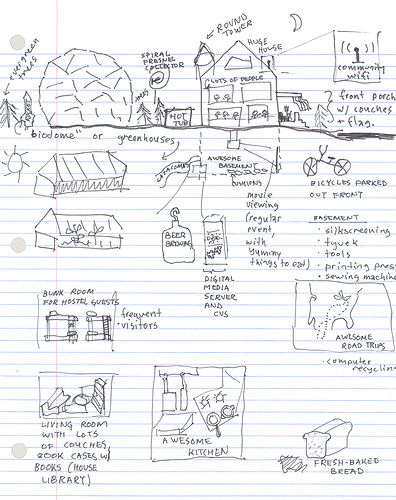 ROUND
TOWER
HUGE
HOUSE
SPIRAL
FRESNEL
COLLECTOR
evergreen
trees
LOTS OF PEOPLE
community
wifi
front porch
w/ couches
+ flag.
HOT
TUB
"biodome" or greenhouses,
CATACOMBS
AWESOME
BASEMENT
movie
viewing
(regular
event,
with
yummy
things to eat)
BICYCLES PARKED
OUT FRONT
BEER
BREWING
DIGITAL
MEDIA
SERVER
AND
CVS
BASEMENT
• silkscreening
• tyvek
• tools
• printing press
• sewing machine
BUNK ROOM
FOR HOSTEL GUESTS
frequent
visitors
AWESOME
ROAD TRIPS
• computer
recycling
LIVING ROOM
WITH LOTS
OF COUCHES,
BOOK CASES W/
BOOKS (HOUSE
LIBRARY)
AWESOME
KITCHEN
FRESH-BAKED
BREAD